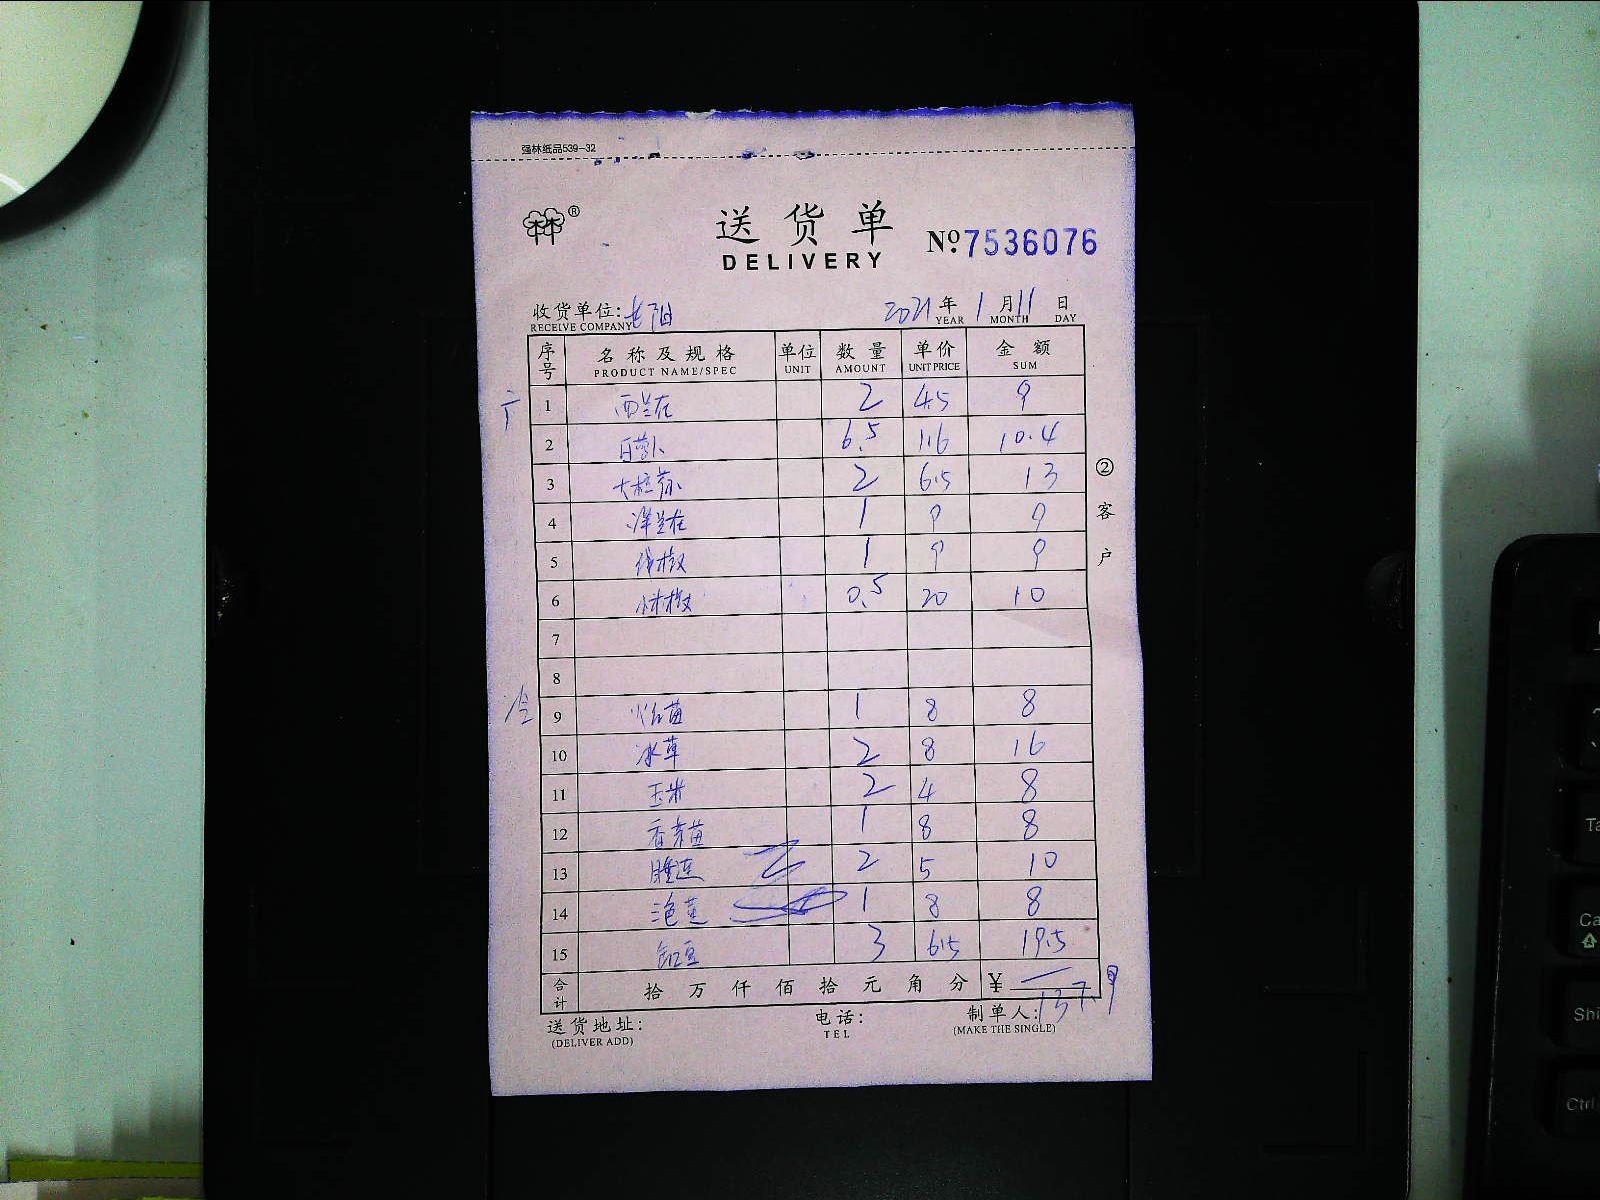 强林纸品539-32
林®
送货单
DELIVERY
№7536076
收货单位:
RECEIVE COMPANY
2021年1月11日
YEAR MONTH DAY
序号 名称及规格 单位 数量 单价 金额
PRODUCT NAME/SPEC UNIT AMOUNT UNIT PRICE SUM
1 西兰花 2 4.5 9
2 白萝卜 6.5 1.6 10.4
3 2 6.5 13
4 1 9 9
5 1 9 9
6 0.5 20 10
7
8
冷
9 1 8 8
10 冰草 2 8 16
11 玉米 2 4 8
12 1 8 8
13 睡莲 2 5 10
14 1 8 8
15 3 6.5 19.5
合计 拾万仟佰拾元角分 ¥137.9
②客户
送货地址: 电话: 制单人:
(DELIVER ADD) TEL (MAKE THE SINGLE)
Ctrl